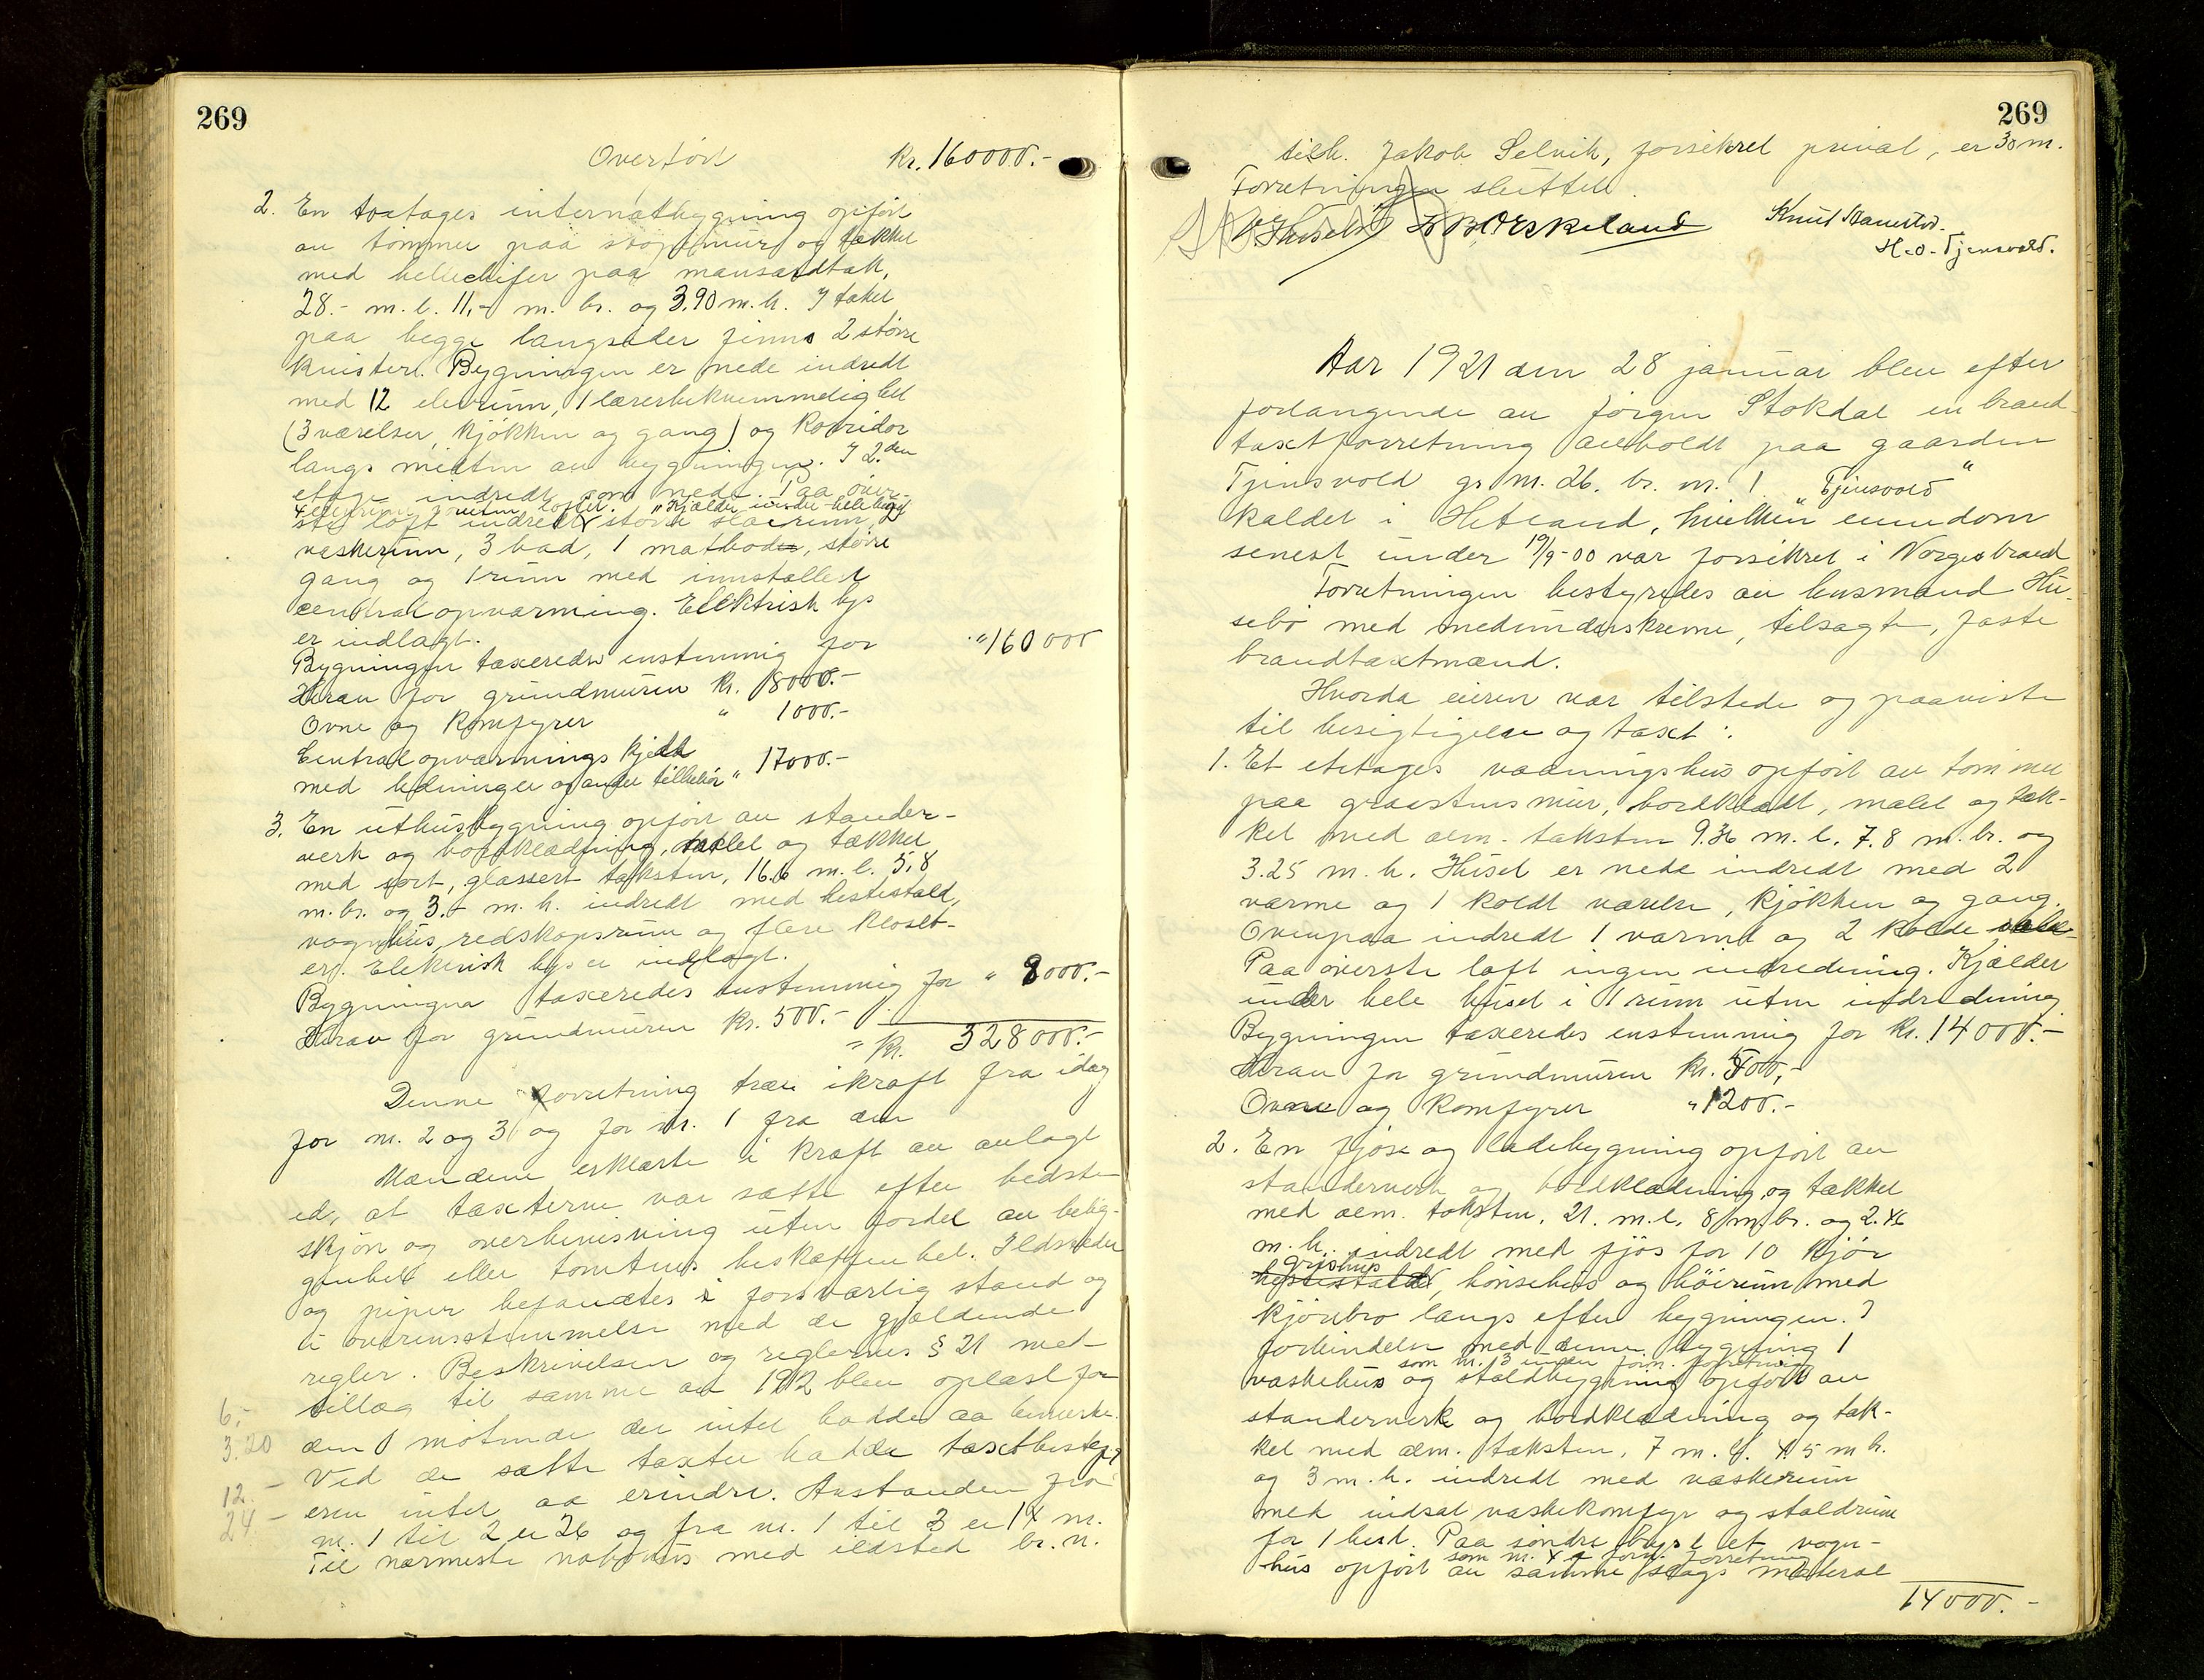 269
Overført kr. 160000.-
2. En toetages internatbygning opført
av tømmer paa støpt mur og tækket
med helleskifer paa mansardtak,
28.- m. l. 11,- m. br. og 3.90 m. h. I taket
paa begge langsider finns 2 større
kvister. Bygningen er nede indredt
med 12 elevrum, 1 lærerbekvemmelighet
(3 værelser, kjøkken og gang) og korridor
langs midten av bygningen. I 2.den
etage indredt som nede. Paa över-
ste loft indredt store
vaskerum, 3 bad, 1 matbod, større
gang og 1 rum med innstallert
centralopvarming. Elektrisk lys
er indlagt.
Bygningen taxeredes enstemmig for " 160000
Herav for grundmuren kr. 18000.-
Ovne og komfyrer " 1000.-
Centralopvarmings kjedel
med ledninger og andet tilbehör " 17000.-
3. En uthusbygning opført av stander-
verk og bordklædning, malet og tækket
med sort, glassert taksten, 16.6 m. l. 5,8
m. br. og 3.- m. h. indredt med hestestald,
vognhus, redskapsrum og flere kloset-
er. Elektrisk lys er indlagt.
Bygningen taxeredes enstemmig for " 8000.-
Herav for grundmuren kr. 500.-
kr. 328000.-
Denne forretning træer ikraft fra idag
for nr. 2 og 3 og for nr. 1 fra den
Mændene erklærte i kraft av avlagt
ed, at taxterne var satte efter bedste
skjøn og overbevisning uten fordel av belig-
genhet eller tomtens beskaffenhet. Ildsteder
og piper befandtes i forsvarlig stand og
i overensstemmelse med de gjældende
regler. Beskrivelsen og reglernes § 21 med
tillæg til samme av 1912 blev oplæst for
den møtende der intet hadde aa bemerke.
Ved de satte taxter hadde taxtbestyr
eren intet aa erindre. Avstanden fra
nr. 1 til 2 er 26 og fra nr. 1 til 3 er 14 m.
Til nærmeste nabohus med ildsted br. n.
6.-
3.20
12.-
24-
269
tilh. Jakob Selvik, forsikret privat, er 30 m.
Forretningen sluttet.
Husebø B. Oeskeland Knut Hauestad.
H. O. Tjensvold.
Aar 1921 den 28 januar blev efter
forlangende av Jørgen Stokdal en brand-
taxtforretning avholdt paa gaarden
Tjensvold gr. nr. 26. br. nr. 1 "Tjensvold"
kaldet i Hetland, hvilken eiendom
senest under 19/9-00 var forsikret i Norges brand
Forretningen bestyredes av lensmand Hu-
sebø med medunderskrevne, tilsagte, faste
brandtaxtmænd.
Hvorda eieren var tilstede og paaviste
til besigtigelse og taxt:
1. Et etetages vaaningshus opført av tømmer
paa graastensmur, bordklædt, malet og tæk-
ket med alm. taksten 9.36 m. l. 7.8 m. br. og
3.25 m. h. Huset er nede indredt med 2
varme og 1 koldt værelse, kjøkken og gang.
Ovenpaa indredt 1 varmt og 2 kolde
Paa øverste loft ingen indredning. Kjælder
under hele huset i 1 rum uten indredning
Bygningen taxeredes enstemmig for kr. 14000.-
Herav for grundmuren kr. 500,-
Ovne og komfyrer " 1200.-
2. En fjøs og ladebygning opført av
standerverk og bordklædning og tækket
med alm. taksten. 21. m. l. 8 m. br. og 2.46
m. h. indredt med fjøs for 10 kjør
grishus
hestestald, hønsehus og høirum med
kjørebro langs efter bygningen. I
forbindelse med denne bygning 1
som nr. 3 under form. forretning
vaskehus og staldbygning opført av
standerverk og bordklædning og tæk-
ket med alm. taksten, 7 m. l. 4.5 m br.
og 3 m. h. indredt med vaskerum
med indsat vaskekomfyr og staldrum
for 1 hest. Paa søndre et vogn-
som nr. 4 i form. forretning
hus opført av samme slags material
14000.-